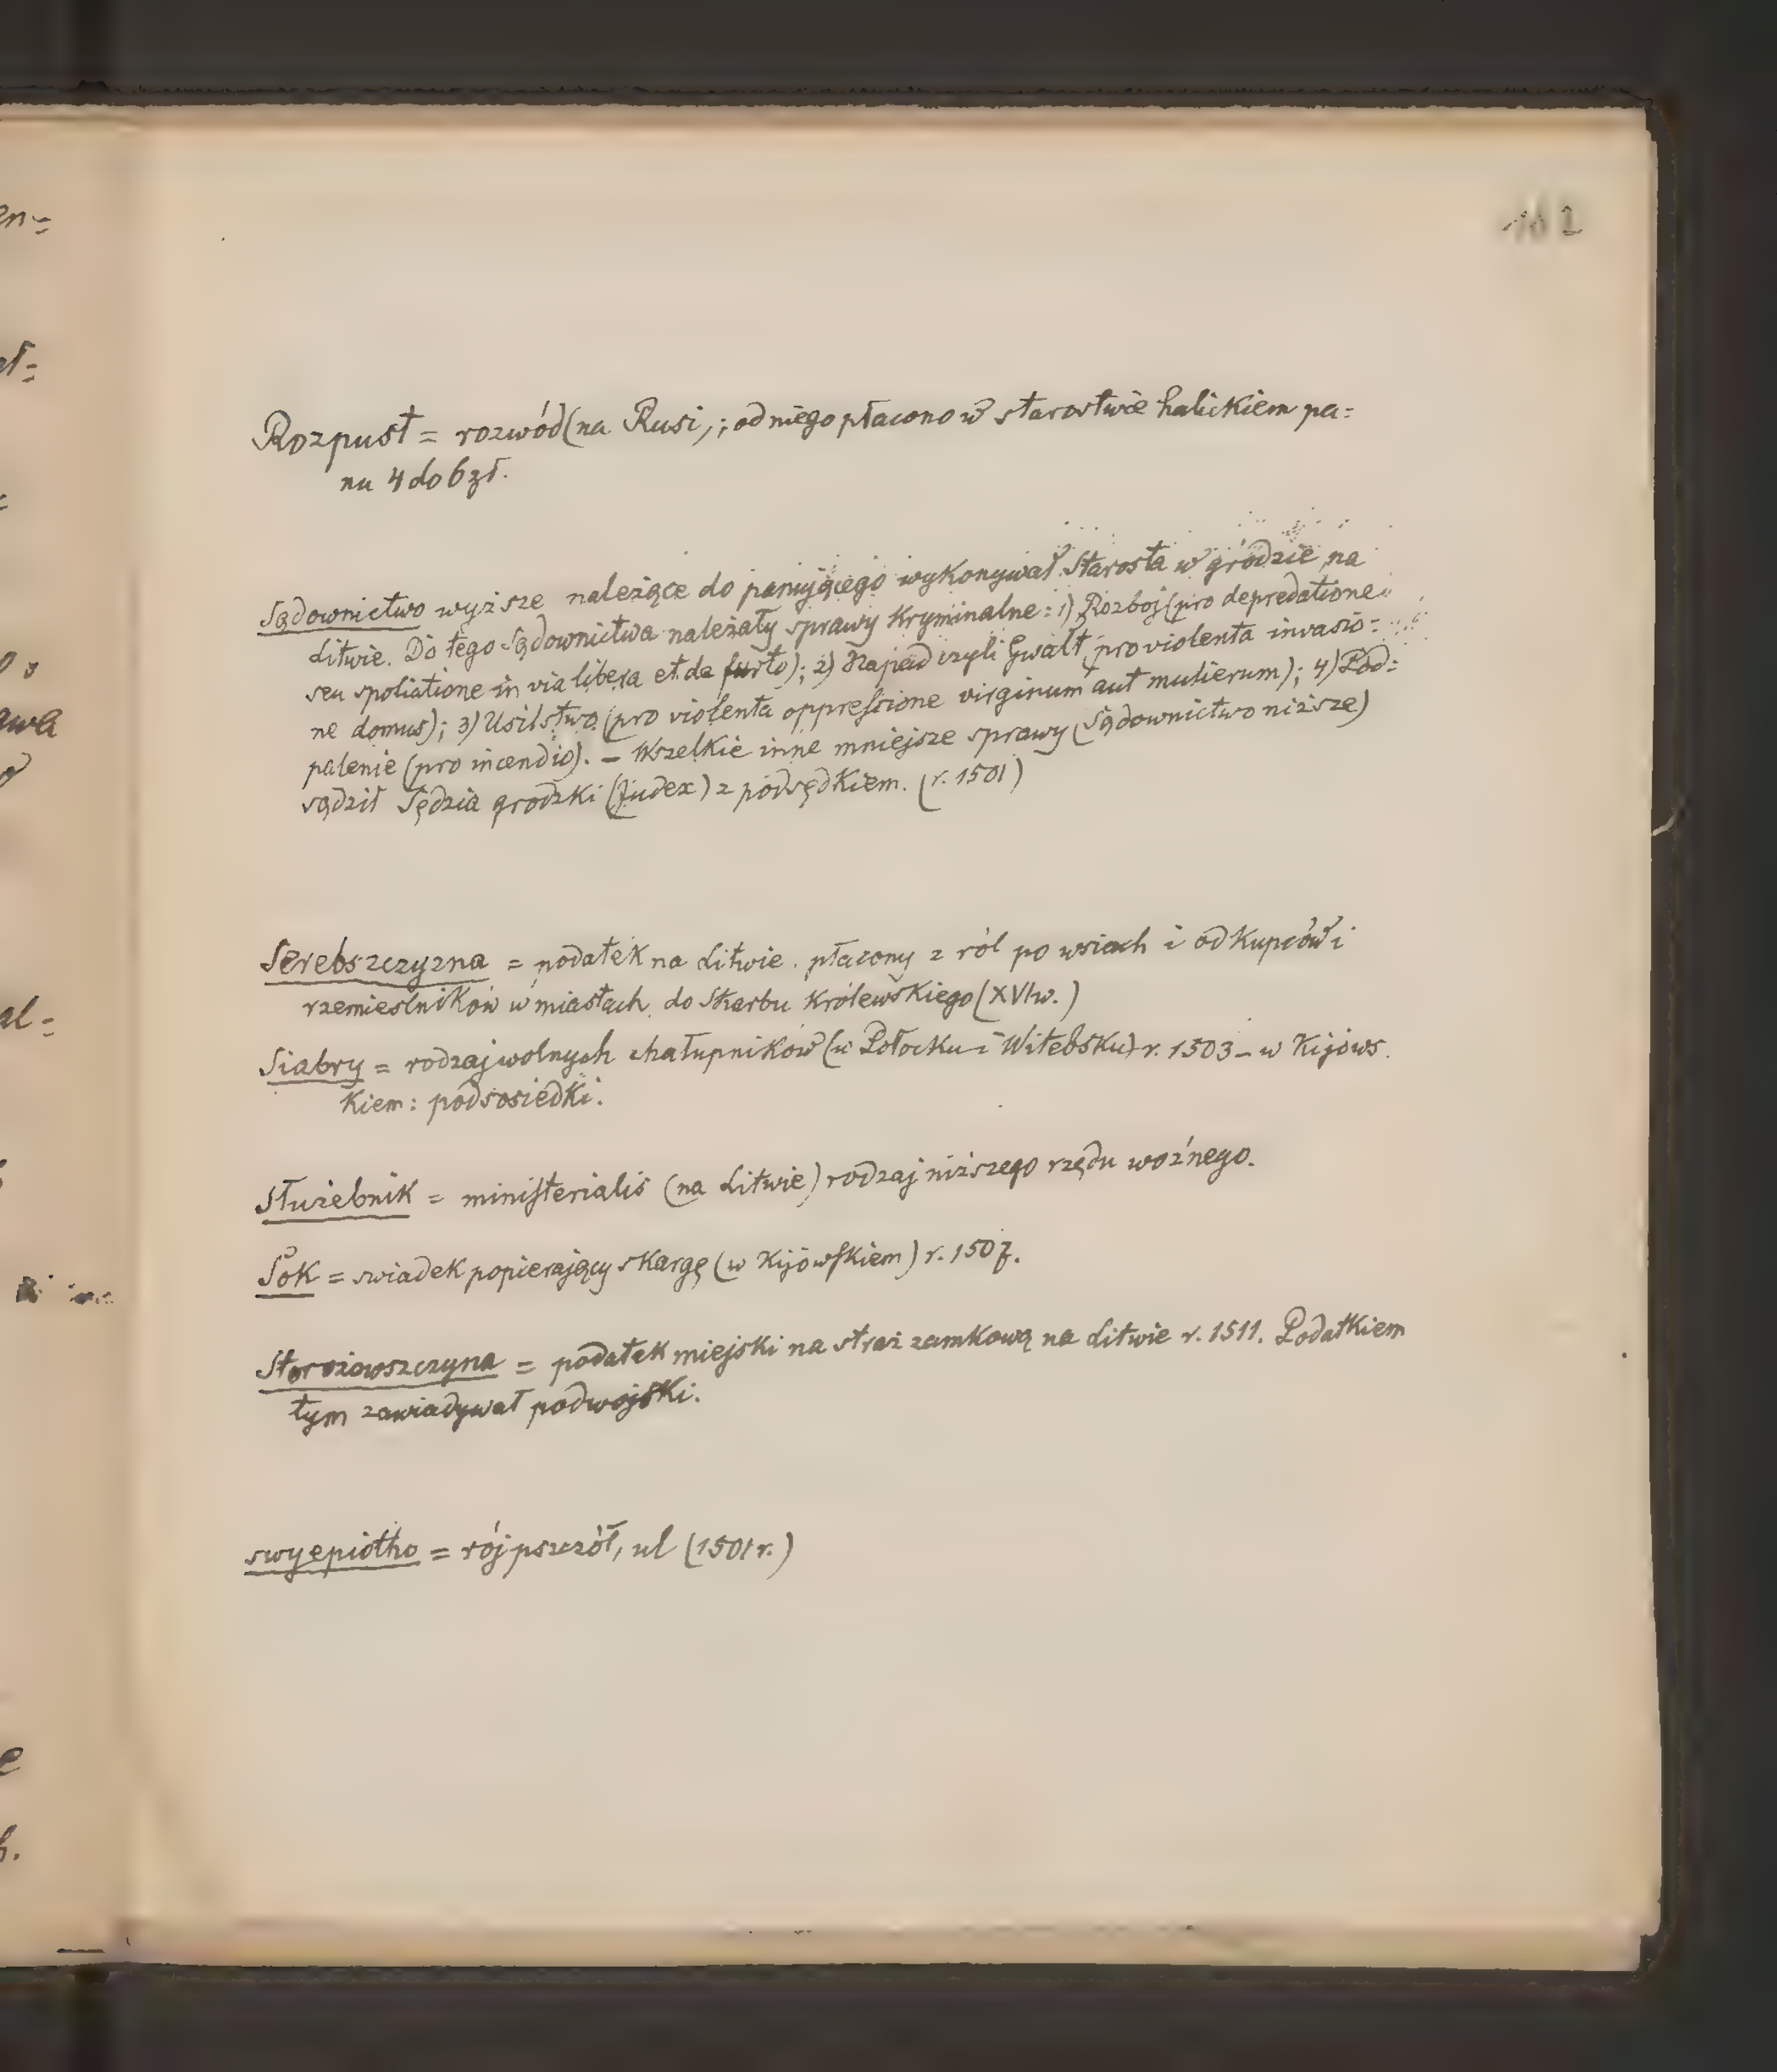 Rozpust = rozwód (na Rusi); od niego płacono w starostwie halickiem pa=
nu 4 do 6 zł.
Sądownictwo wyższe należące do panującego wykonywał Starosta w grodzie na
Litwie. Do tego sądownictwa należały sprawy kryminalne: 1) Rozboj (pro depredatione
seu spoliatione in via libera et de furto); 2) Najazd czyli Gwałt pro violenta invasio=
ne domus); 3) Usilstwo (pro violenta oppressione virginum aut mulierum); 4) Pod=
palenie (pro incendio). – Wszelkie inne mniejsze sprawy (sądownictwo niższe)
sądził Sędzia grodzki (Judex) z podsędkiem. (r. 1501)
Serebszczyzna = podatek na Litwie płacony z ról po wsiach i od kupców i
rzemieslników w miastach do Skarbu Królewskiego (XVI w.)
Siabry = rodzaj wolnych chałupników (w Połocku i Witebsku) r. 1503 – w Kijows
kiem: podsosiedki.
Służebnik = ministerialis (na Litwie) rodzaj niższego rzędu woźnego.
Sok = swiadek popierający skargę (w Kijowskiem) r. 1507.
Storożowszczyna = podatek miejski na straż zamkową na Litwie r. 1511. Podatkiem
tym zawiadywał podwojski.
swyepiotho = rój pszczół, ul (1501 r.)